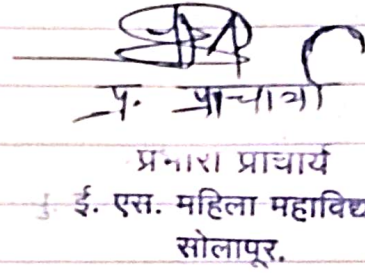 प्र. प्राचार्या
प्रभारी प्राचार्य
ई. एस. महिला महाविद्य
सोलापूर.